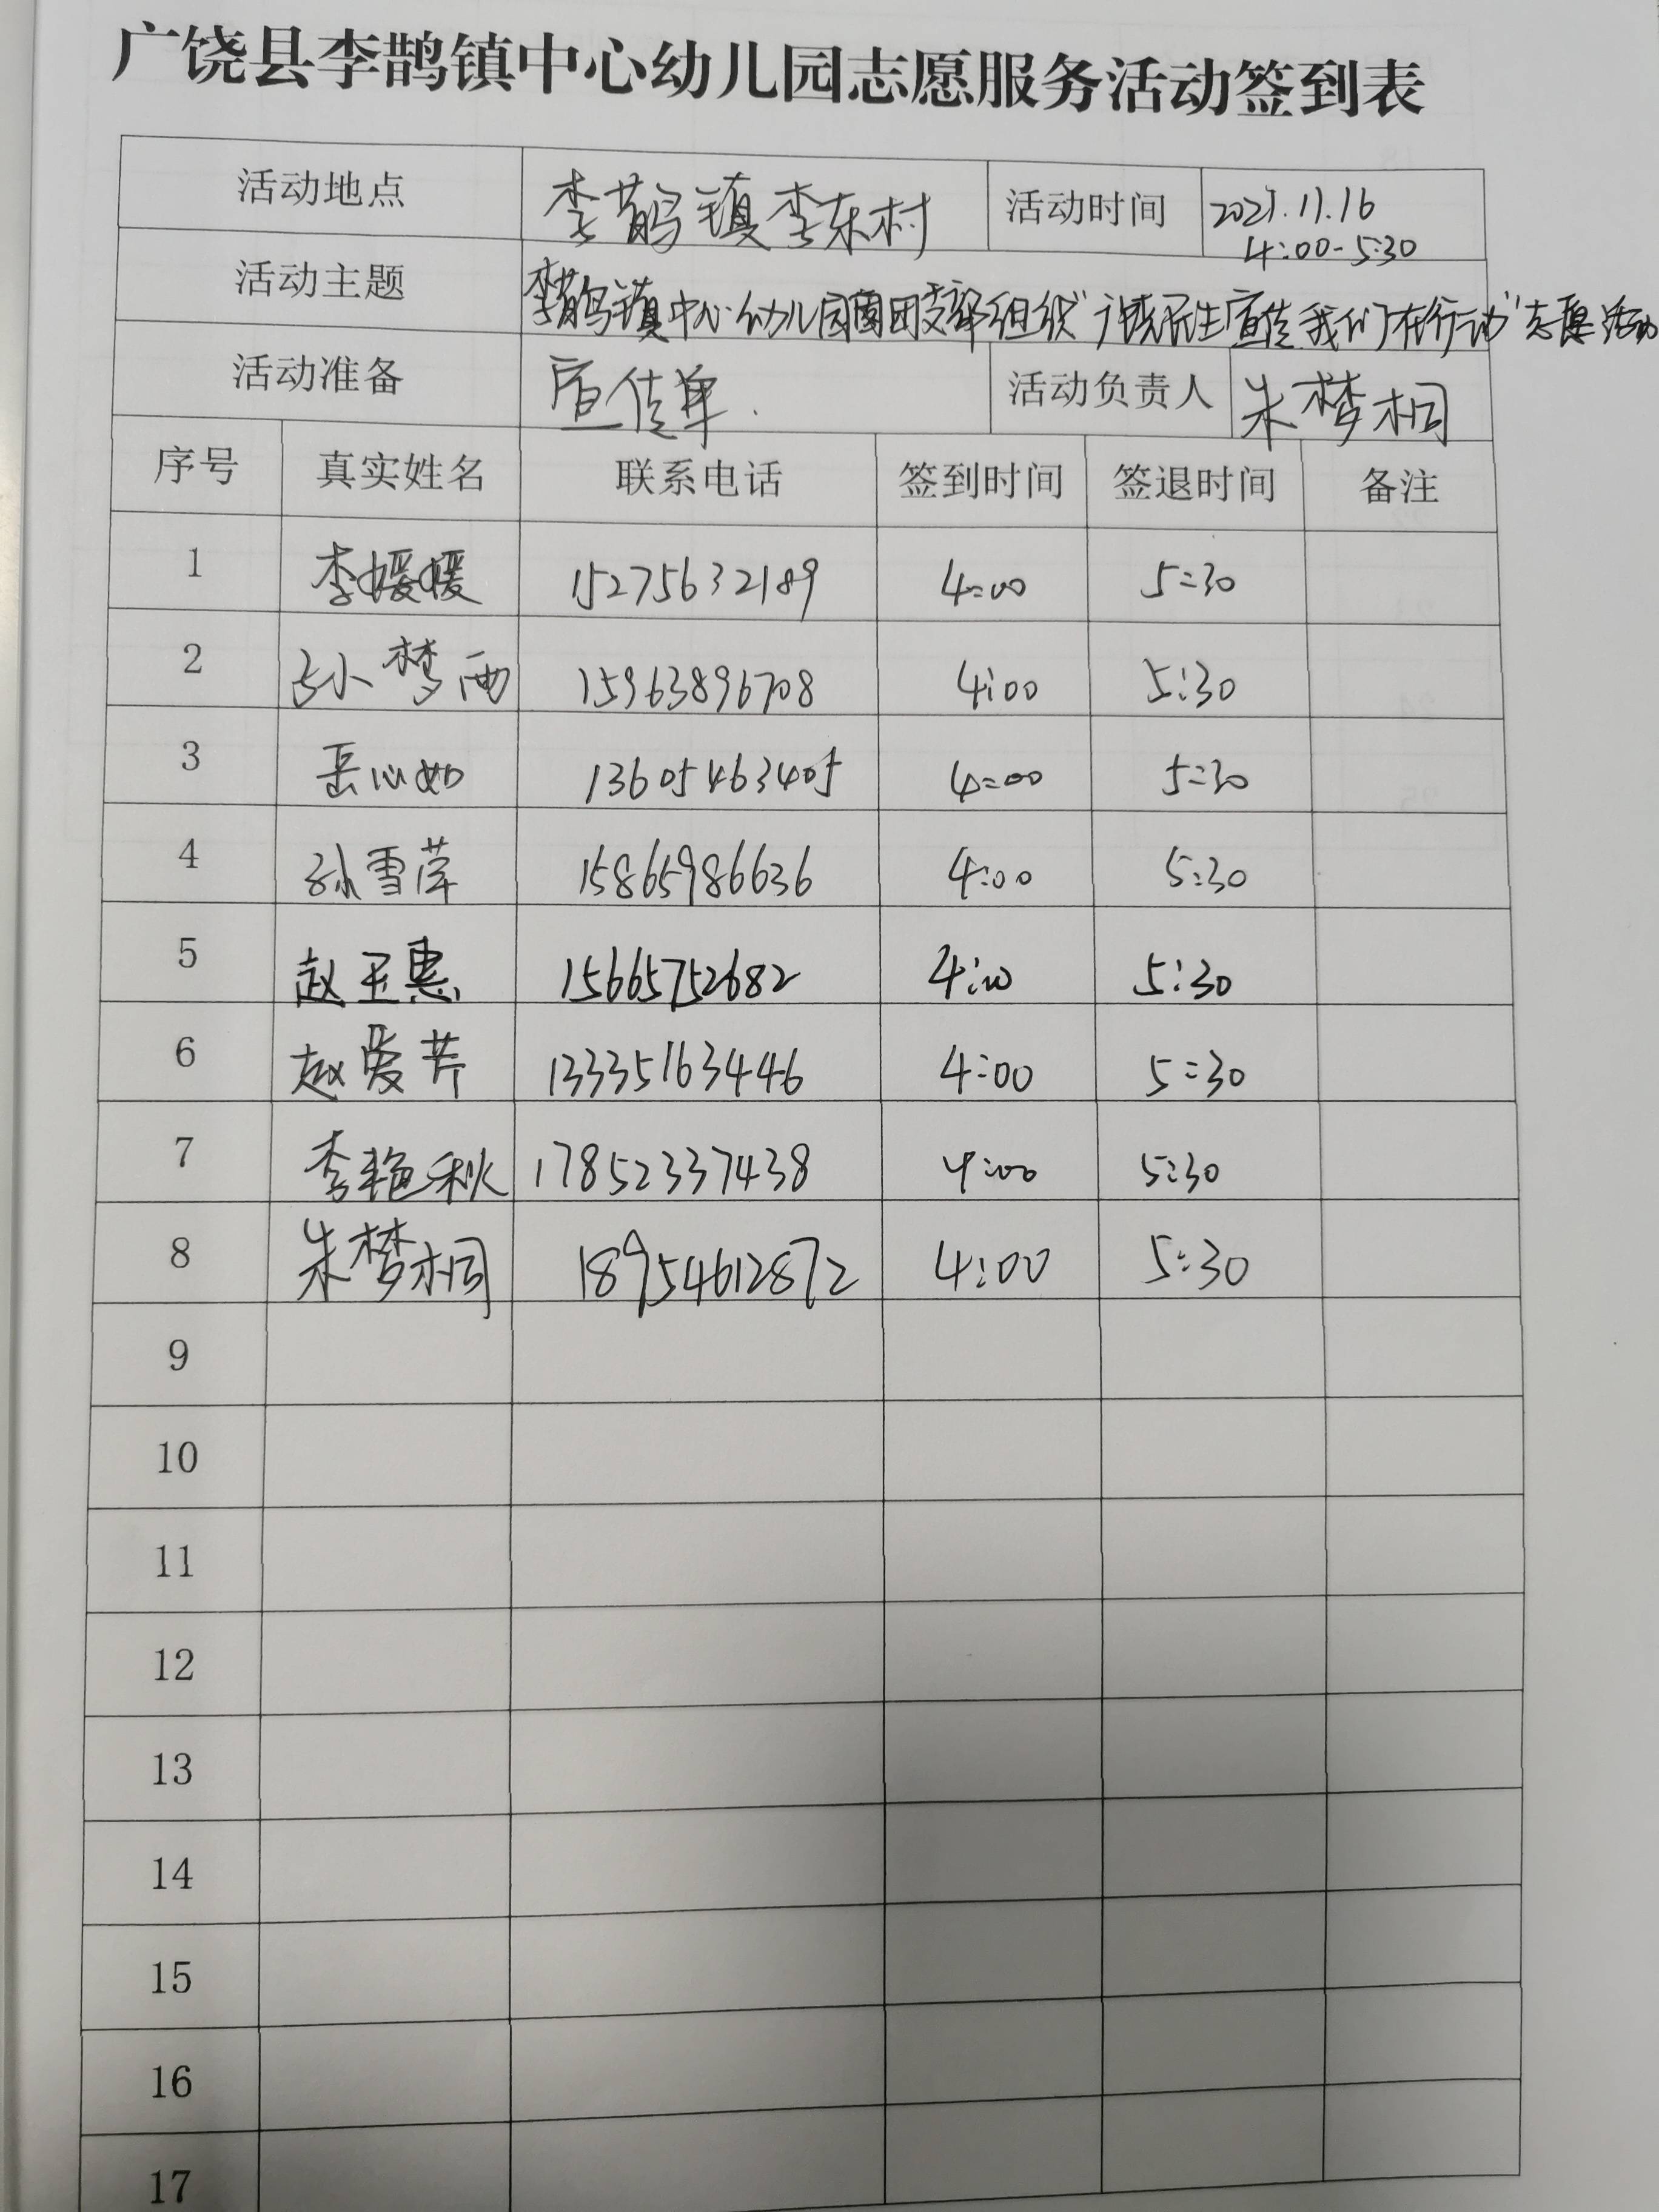 广饶县李鹊镇中心幼儿园志愿服务活动签到表
活动地点 李鹊镇李东村 活动时间 2021.11.16
4:00-5:30
活动主题 李鹊镇中心幼儿园团支部组织"清洗民生宣传我们在行动"志愿活动
活动准备 宣传单. 活动负责人 朱梦桐
序号 真实姓名 联系电话 签到时间 签退时间 备注
1 李媛媛 15275632189 4:00 5:30
2 孙梦雨 15963896708 4:00 5:30
3 岳心如 13605463405 4:00 5:30
4 孙雪萍 15865986636 4:00 5:30
5 赵玉惠 15665752682 4:00 5:30
6 赵爱芹 13335163446 4:00 5:30
7 李艳秋 17852337438 4:00 5:30
8 朱梦桐 18954612872 4:00 5:30
9
10
11
12
13
14
15
16
17